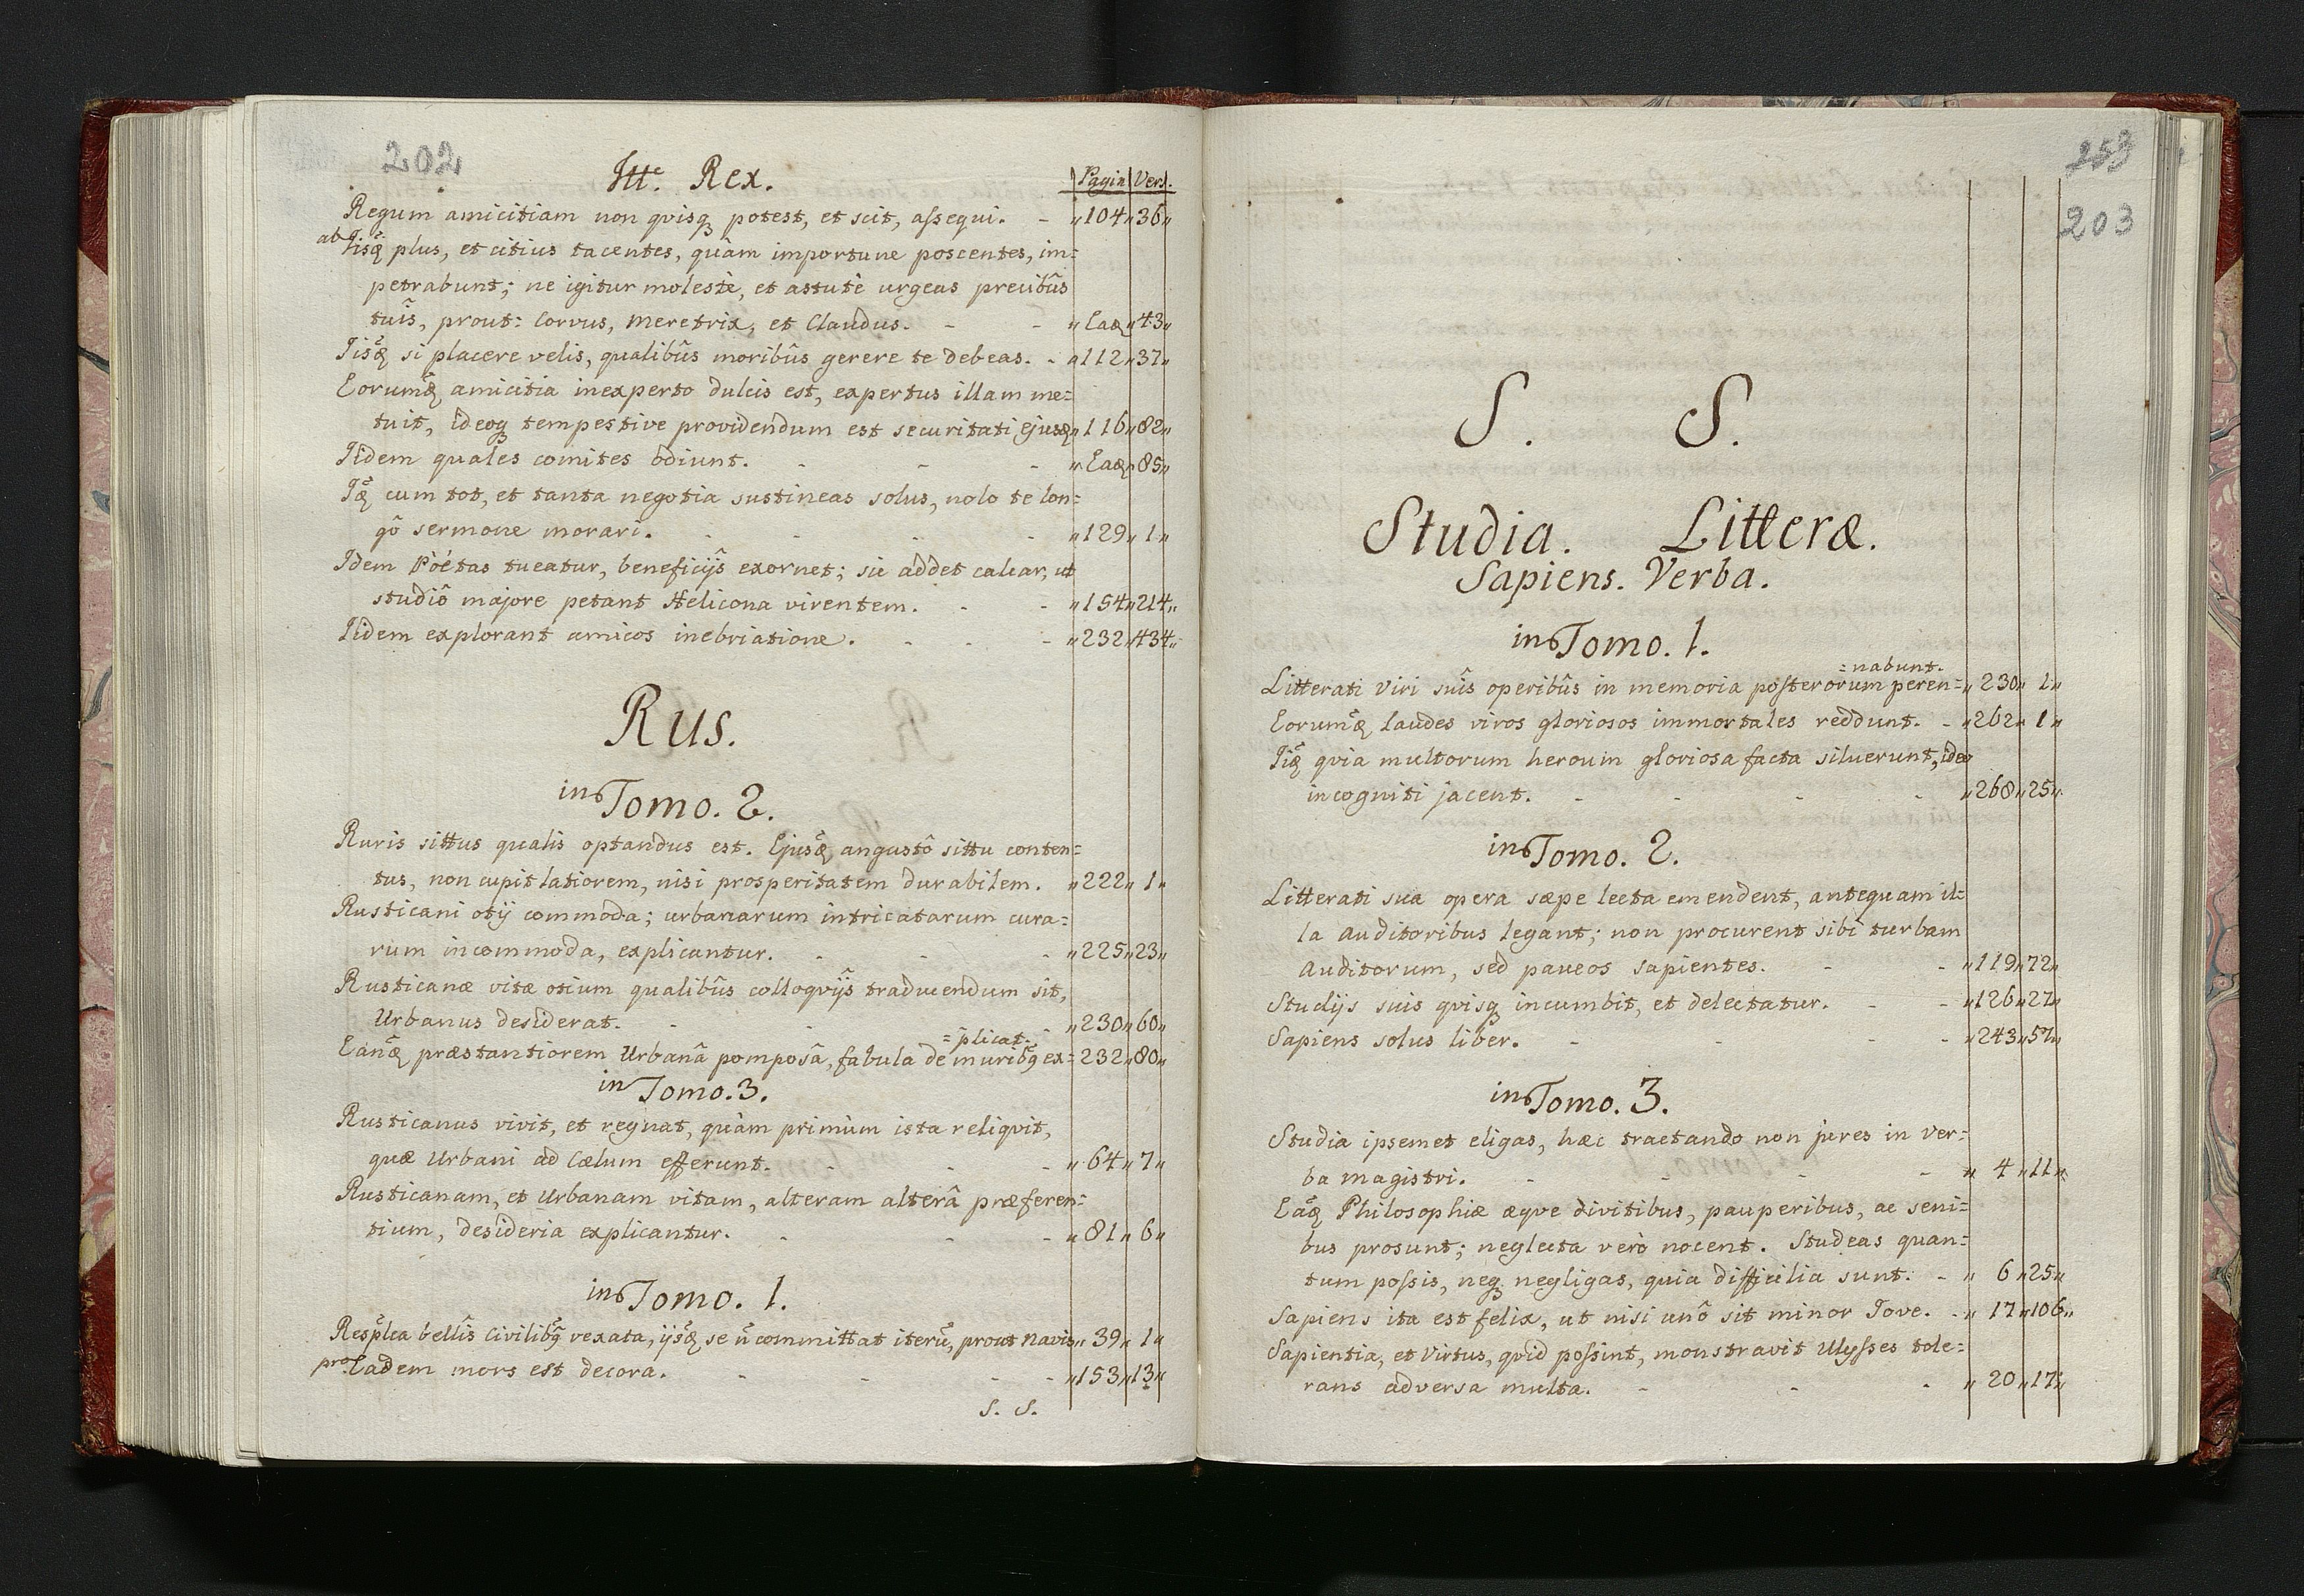 202
Itte. Rex.
Pagin. Vers.
Regum amicitiam non qvisq3 potest, et scit, aſsequi. - „104„36„
ab Iisdē plus, et citius tacentes, quàm importune poscentes, im=
petrabunt; ne igitur molestè, et astutè urgeas precibûs
tuîs, prout: Corvus, Meretrix, et Claudus. - - „Ead„43„
Iisdē si placere velis, qualibûs moribûs gerere te debeas. - „112„37„
Eorumdē amicitia inexperto dulcis est, expertus illam me=
tuit, ideoq3 tempestive providendum est securitati ejusd„116„82„
Iidem quales comites odiunt. - - - „Ead„85„
Idē cum tot, et tanta negotia sustineas solus, nolo te lon=
gô sermone morari. - - - - „129„1„
Idem Pöétas tueatur, beneficijs exornet; sic addet calcar, ut
studiô majore petant Helicona virentem. - - „154„214„
Iidem explorant amicos inebriatione. - - - „232„434„
Rus.
in Tomo. 2.
Ruris sittus qualis optandus est. Ejusdē angustô sittu conten=
tus, non cupit latiorem, nisi prosperitatem durabilem. „222„1„
Rusticani otij commoda; urbanarum intricatarum cura=
rum incommoda, explicantur. - - - „225„23„
Rusticanæ vitæ otium qualibûs colloqvijs traducendum sit,
Urbanus desiderat. - - - „230„60„
=plicat.
Eandē præstantiorem Urbanâ pomposâ, fabula de muribq ex= 232„80„
in Tomo. 3.
Rusticanus vivit, et regnat, quàm primùm ista reliqvit,
quæ Urbani ad Cælum efferunt. - - - „64„7„
Rusticanam, et Urbanam vitam, alteram alterâ præferen=
tium, desideria explicantur. - - - „81„6„
in Tomo. 1.
Respľca bellîs Civilibq vexata, ijsdē se ñ committat iterū, prout Navis„39„1„
pro Eadem mors est decora. - - - - „153„13„
S. S.
203
203
S. S.
Studia. Litteræ.
Sapiens. Verba.
in Tomo. 1.
=nabunt.
Litterati Viri suîs operibûs in memoria poſterorum peren=„230„1„
Eorumdē laudes viros gloriosos immortales reddunt. - „262„1„
Iidē qvia multorum heroum gloriosa facta siluerunt, ideo
incogniti jacent. - - - - „268„25„
in Tomo. 2.
Litterati sua opera sæpe lecta emendent, antequam il=
la Auditoribus legant; non procurent sibi turbam
Auditorum, sed paucos Sapientes. - - „119„72„
Studijs suis qvisq3 incumbit, et delectatur. - - „126„27„
Sapiens solus liber. - - - „243„57„
in Tomo. 3.
Studia ipsemet eligas, hæc tractando non jures in ver=
ba magistri. - - - - „4„11„
Eadē Philosophiæ æqve divitibus, pauperibus, ac seni=
bus prosunt; neglecta verò nocent. Studeas quan=
tum poſsis, neq3 negligas, quia difficilia sunt. - „6„25„
Sapiens ita est felix, ut nisi unô sit minor Jove. - „17„106„
Sapientia, et Virtus, qvid poſsint, monstravit Ulyſses tole=
rans adversa multa. - - - „20„17„